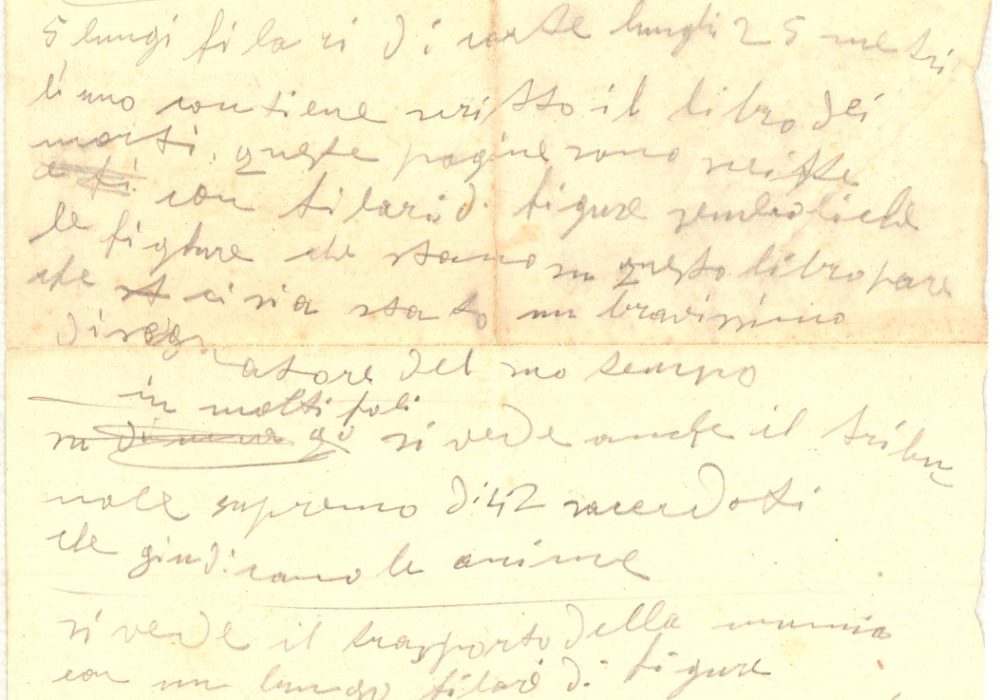 5 lungi filari di carte lunghi 25 metri
l'uno contiene scritto il libro dei
morti. queste pagine sono scritte
con filari di figure simboliche
le figure che stano su questo libro pare
che ci sia stato un bravissimo
disegnatore del suo tempo
in molti foli
su si vede anche il tribu
nale supremo di 42 sacerdoti
che giudicano le anime
si vede il trasporto della mumia
con un lungo filare di figure